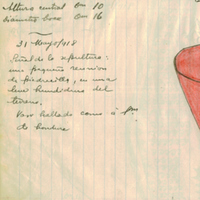 Altura central 0m 10
Diámetro boca 0m 16
21 Mayo/918
Señal de la sepultura:
una pequeña reunión
de piedrecillas, en una
leve hundidura del
terreno.
Vaso hallado como á 1m
de hondura